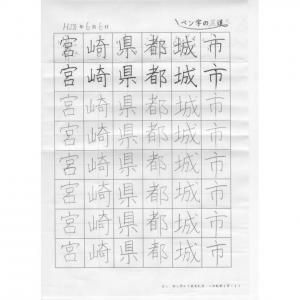 H28年6月6日
ペン字の
宮崎県都城市
宮崎県都城市
宮崎県都城市
宮崎県都城市
宮崎県都城市
宮崎県都城市
宮崎県都城市
宮崎県都城市